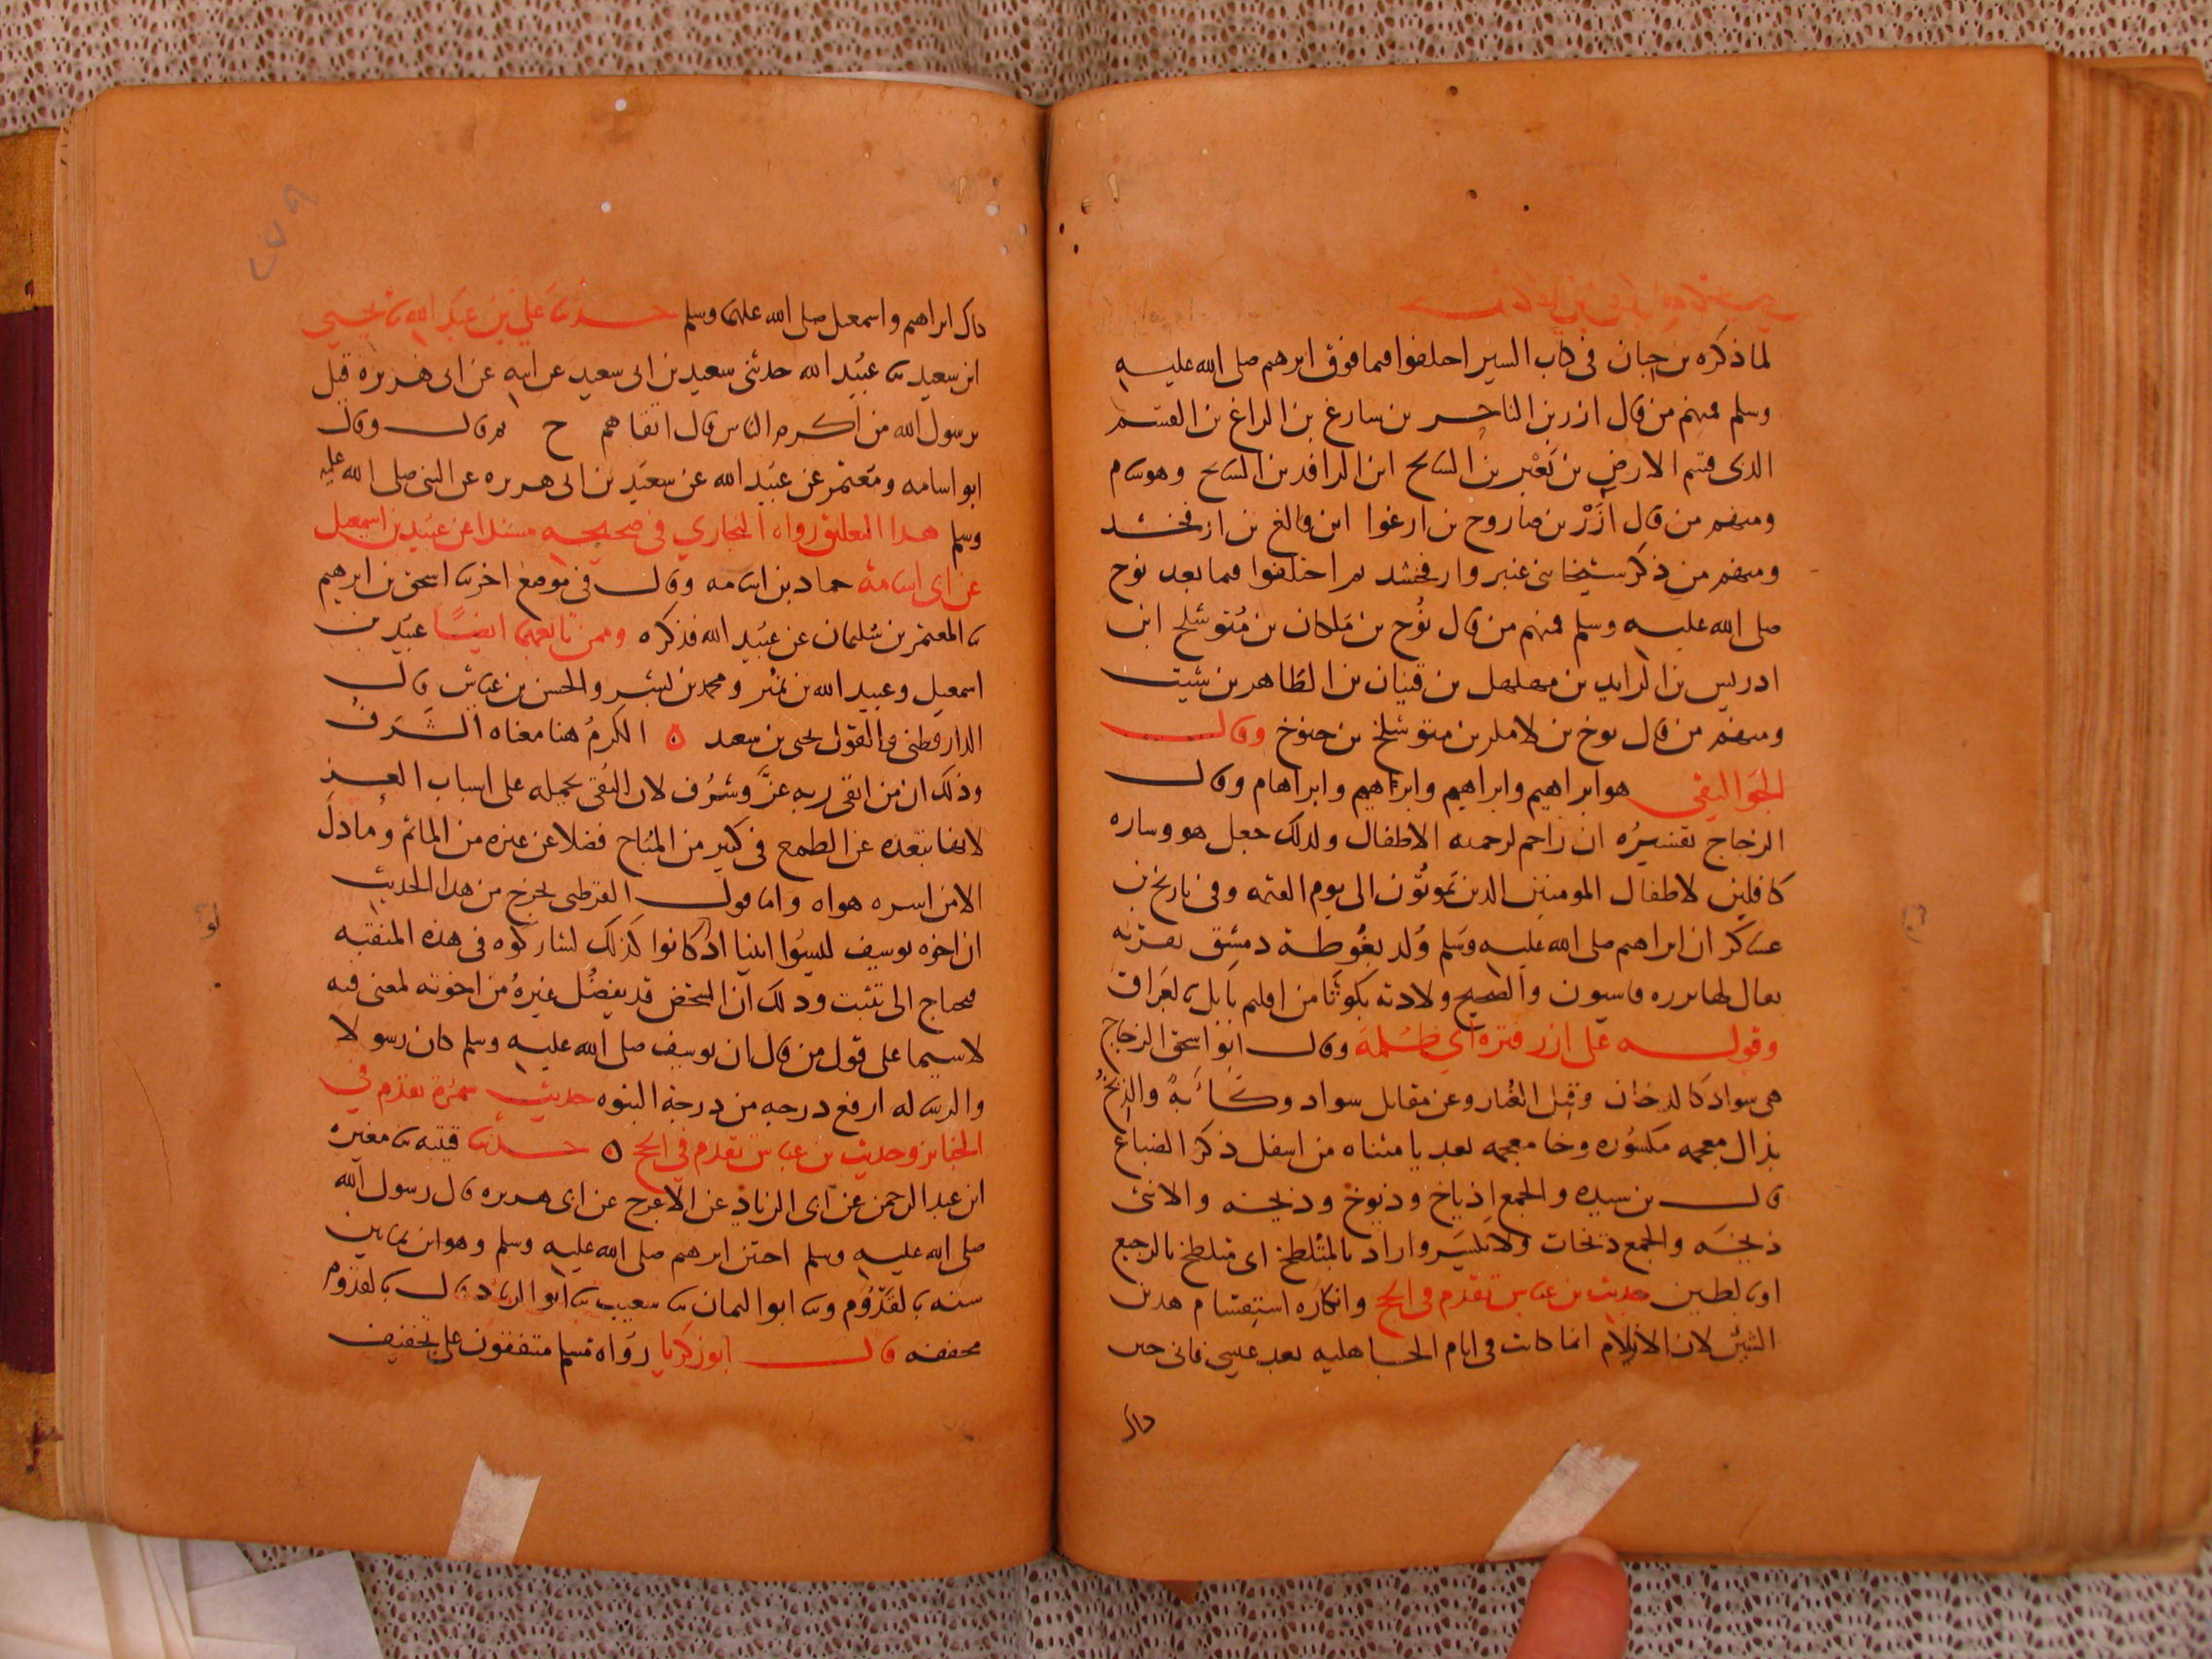 لما ذكره بن حبان فى كتاب السير احلفوا فيما فوق ابرهيم صلى الله عليه
وسلم فمنهم من قال ازر بن الناحر بن سارغ بن الراغ بن القسم
الذى قسم الارض بن يعبر بن السايح ابن الرافد بن السايح وهو سام
ومنهم من قال ازر بن صاروح بن ارغوا ابن فالغ بن ارفخشد
ومنهم من ذكر بين عنبر وارفخشد ثم اختلفوا فيما بعد نوح
صلى الله عليه وسلم فمنهم من قال نوح بن ملكان بن متوشلح ابن
ادريس بن الرايد بن مهلهل بن قينان بن الطاهر بن شيت
ومنهم من قال نوح بن لامك بن متوشلخ بن خنوخ وقال
الجواليقى هو ابراهيم وابراهيم وابراهيم وابراهام وقال
الزجاج تفسيره اب راحم لرحمته الاطفال ولذلك جعل هو وساره
كافلين لاطفال المومنين الذين يموتون الى يوم القيمه وفى تاريخ بن
عساكر ان ابراهيم صلى الله عليه وسلم ولد بغوطة دمشق بقرية
يقال لها برزه قاسيون والصحيح ولادته بكوثا من اقليم بابل بالعراق
وقوله على ازر قترة اي ظلمة وقال ابو اسحق الزجاج
هى سواد كالدخان وقيل الغبار وعن مقاتل سواد وكأبة والذيخ
بذال معجمه مكسوره وخا معجمه بعد يا مثناه من اسفل ذكر الضباع
قال بن سيده والجمع اذياخ وذيوخ وذيخه والانثى
ذيخه والجمع ذيخات ولا يكسر واراد بالمتلطخ اى متلطخ بالرجيع
او بالطين حديث بن عباس تقدم فى الحج وانكاره استقسام هدين
النبيين لان الازلام انما كانت فى ايام الجاهليه بعد عيسى فانى حين
كان
كان ابراهيم واسمعيل صلى الله عليهما وسلم حدثنا علي بن عبد الله نا يحيي
ابن سعيد نا عبيد الله حدثنى سعيد بن ابى سعيد عن ابيه عن ابى هريره قيل
يرسول الله من اكرم الناس قال اتقاهم ح ثم قال وقال
ابو اسامه ومعتمر عن عبيد الله عن سعيد بن ابى هريره عن النبى صلى الله عليه
وسلم هذا التعليق رواه البخاري في صحيحه مسندا عن عبيد بن اسمعيل
عن ابى اسامة حماد بن اسامه وقال فى موضع اخر نا اسحق بن ابرهيم
نا المعتمر بن سليمان عن عبيد الله فذكره وممن تابعهما ايضًا عبيد بن
اسمعيل وعبيد الله بن نمير ومحمد بن بشر والحسن بن عياش قال
الدارقطنى والقول يحيى بن سعد ٥ الكرم هنا معناه الشرف
وذلك ان من اتقى ربه عزَّ وشرُف لان التقى يحمله على اسباب العز
لانها تبعده عن الطمع فى كثير من المباح فضلا عن غيره من المأثم وما ذل
الا من اسره هواه واما قول القرطبى يخرج من هذا الحديث
ان اخوه يوسف ليسوا انبيا اذ كانوا كذلك لشاركوه فى هذه المنقبه
فيحتاج الى تثبت وذلك ان الشخص قد يفضل غيره من اخوته لمعنى فيه
لا سيما على قول من قال ان يوسف صلى الله عليه وسلم كان رسولا
والرساله ارفع درجه من درجة النبوه حديث سمرة تقدم في
الجنايز وحديث بن عباس تقدم في الحج ٥ حدثنا قتيبه نا مغيره
ابن عبد الرحمن عن ابى الزناد عن الاعرج عن ابى هريره قال رسول الله
صلى الله عليه وسلم اختتن ابرهيم صلى الله عليه وسلم وهو ابن ثمانين
سنه بالقدّوم ونا ابو اليمان نا شعيب نا ابو الزناد قال بالقدوم
مخففه قال ابو زكريا رواه مسلم متفقون على تخفيف